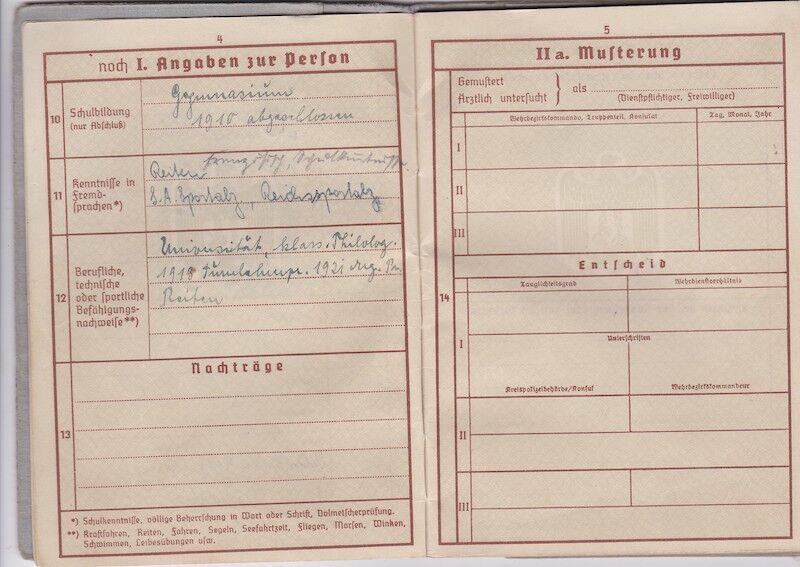 4
noch I. Angaben zur Person
10 Schulbildung
(nur Abschluß)
Gymnasium
1910 abgeschlossen
11 Kenntnisse in
Fremd-
sprachen*)
Reiten Französisch, Schulkenntnisse.
S.A. Sportabz., Reichssportabz.
12 Berufliche,
technische
oder sportliche
Befähigungs-
nachweise**)
Universität, klass. Philolog.
1919 1921
Reiten
Nachträge
13
*) Schulkenntnisse, völlige Beherrschung in Wort oder Schrift, Dolmetscherprüfung.
**) Kraftfahren, Reiten, Fahren, Segeln, Seefahrtzeit, Fliegen, Morsen, Winken,
Schwimmen, Leibesübungen usw.
5
II a. Musterung
Gemustert
Ärztlich untersucht } als
(Dienstpflichtiger, Freiwilliger)
Wehrbezirkskommando, Truppenteil, Konsulat Tag, Monat, Jahr
I
II
III
Entscheid
14 Tauglichkeitsgrad Wehrdienstverhältnis
I Unterschriften
Kreispolizeibehörde/Konsul Wehrbezirkskommandeur
II
III